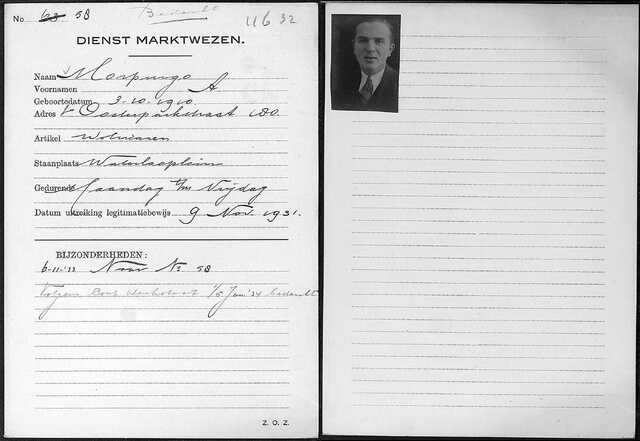 No 63 58
Bedankt
11632
DIENST MARKTWEZEN.
Naam Morpurgo
Voornamen A
Geboortedatum 3-10-1910
Adres Oosterparkstraat 180.
Artikel Wolwaren
Staanplaats Waterlooplein
Gedurende Maandag t/m Vrijdag
Datum uitreiking legitimatiebewijs 9 Nov. 1931.
BIJZONDERHEDEN:
6-11-'33 Naar No 58
Volgens 1/5 Jan '34 bedankt
Z. O. Z.